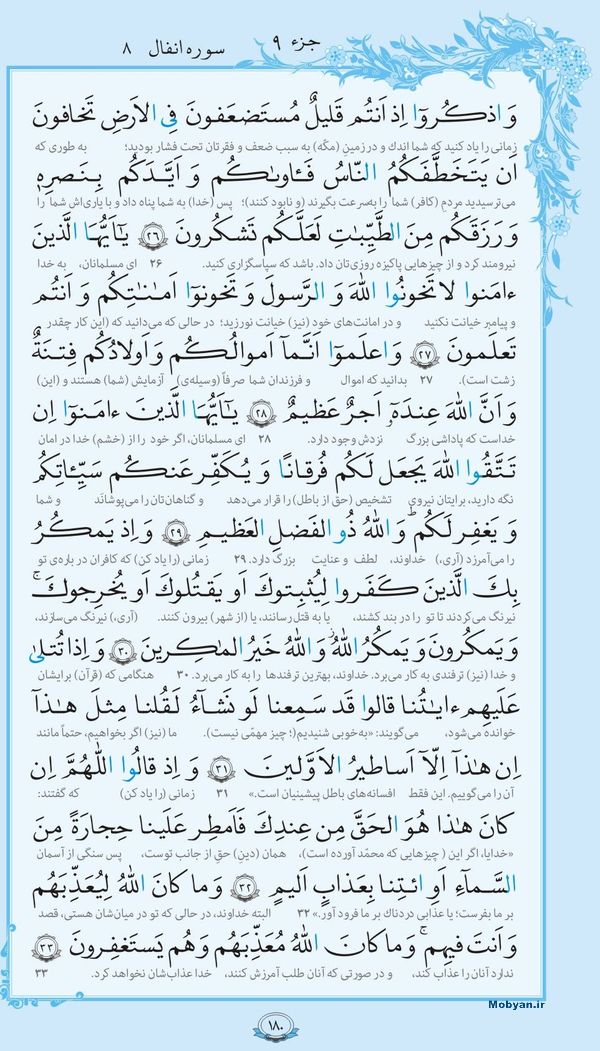 جزء ۹
سوره انفال ۸
وَ اذكُروٓا إِذ أَنتُم قَليلٌ مُستَضعَفونَ فِى الاَرضِ تَخافونَ
زمانی را یاد کنید که شما اندک و در زمینِ (مکّه) به سبب ضعف و فقرتان تحت فشار بودید؛ به طوری که
أَن يَتَخَطَّفَكُمُ النّاسُ فَـٔاوىٰكُم وَ أَيَّدَكُم بِنَصرِهٖ
می‌ترسیدید مردمِ (کافر) شما را به‌سرعت بگیرند (و نابود کنند)؛ پس (خدا) به شما پناه داد و با یاری‌اش شما را
وَ رَزَقَكُم مِنَ الطَّيِّبٰتِ لَعَلَّكُم تَشكُرونَ ۲۶ يٰٓأَيُّهَا الَّذينَ
نیرومند کرد و از چیزهایی پاکیزه روزی‌تان داد. باشد که سپاسگزاری کنید. ۲۶ ای مسلمانان، به خدا
ءامَنوا لا تَخونُوا اللهَ وَ الرَّسولَ وَ تَخونوٓا أَمٰنٰتِكُم وَ أَنتُم
و پیامبر خیانت نکنید و در امانت‌های خود (نیز) خیانت نورزید؛ در حالی که می‌دانید که (این کار چقدر
تَعلَمونَ ۲۷ وَ اعلَموٓا أَنَّمآ أَموالُكُم وَ أَولادُكُم فِتنَةٌ
زشت است). ۲۷ بدانید که اموال و فرزندان شما صرفاً (وسیله‌ی) آزمایش (شما) هستند و (این)
وَ أَنَّ اللهَ عِندَهٗٓ أَجرٌ عَظيمٌ ۲۸ يٰٓأَيُّهَا الَّذينَ ءامَنوٓا إِن
خداست که پاداشی بزرگ نزدش وجود دارد. ۲۸ ای مسلمانان، اگر خود را از (خشم) خدا در امان
تَتَّقُوا اللهَ يَجعَل لَكُم فُرقانًا وَ يُكَفِّر عَنكُم سَيِّـٔاتِكُم
نگه دارید، برایتان نیروی تشخیص (حق از باطل) را قرار می‌دهد و گناهان‌تان را می‌پوشاند و شما
وَ يَغفِر لَكُم ۗ وَ اللهُ ذُو الفَضلِ العَظيمِ ۲۹ وَ إِذ يَمكُرُ
را می‌آمرزد (آری،) خداوند، لطف و عنایت بزرگ دارد. ۲۹ زمانی (را یاد کن) که کافران در باره‌ی تو
بِكَ الَّذينَ كَفَروا لِيُثبِتوكَ أَو يَقتُلوكَ أَو يُخرِجوكَ ۚ
نیرنگ می‌کردند تا تو را در بند کشند، یا به قتل رسانند، یا (از شهر) بیرون کنند. (آری،) نیرنگ می‌سازند،
وَ يَمكُرونَ وَ يَمكُرُ اللهُ ۖ وَ اللهُ خَيرُ المٰكِرينَ ۳۰ وَ إِذا تُتلىٰ
و خدا (نیز) ترفندی به کار می‌برد. خداوند، بهترین ترفندها را به کار می‌برد. ۳۰ هنگامی که (قرآن) برایشان
عَلَيهِم ءايٰتُنا قالوا قَد سَمِعنا لَو نَشآءُ لَقُلنا مِثلَ هٰذآ
خوانده می‌شود، می‌گویند: «به‌خوبی شنیدیم(؛ چیز مهمّی نیست). ما (نیز) اگر بخواهیم، حتماً مانند
إِن هٰذآ إِلّآ أَساطيرُ الأَوَّلينَ ۳۱ وَ إِذ قالُوا اللّٰهُمَّ إِن
آن را می‌گوییم. این فقط افسانه‌های باطل پیشینیان است.» ۳۱ زمانی (را یاد کن) که گفتند:
كانَ هٰذا هُوَ الحَقَّ مِن عِندِكَ فَأَمطِر عَلَينا حِجارَةً مِنَ
«خدایا، اگر این ( چیزهایی که محمّد آورده است)، همان (دینِ) حق از جانب توست، پس سنگی از آسمان
السَّمآءِ أَوِ ائتِنا بِعَذابٍ أَليمٍ ۳۲ وَ ما كانَ اللهُ لِيُعَذِّبَهُم
بر ما بفرست؛ یا عذابی دردناک بر ما فرود آور.» ۳۲ البته خداوند، در حالی که تو در میان‌شان هستی، قصد
وَ أَنتَ فيهِم ۚ وَ ما كانَ اللهُ مُعَذِّبَهُم وَ هُم يَستَغفِرونَ ۳۳
ندارد آنان را عذاب کند، و در صورتی که آنان طلب آمرزش کنند، خدا عذاب‌شان نخواهد کرد. ۳۳
Mobyan.ir
۱۸۰